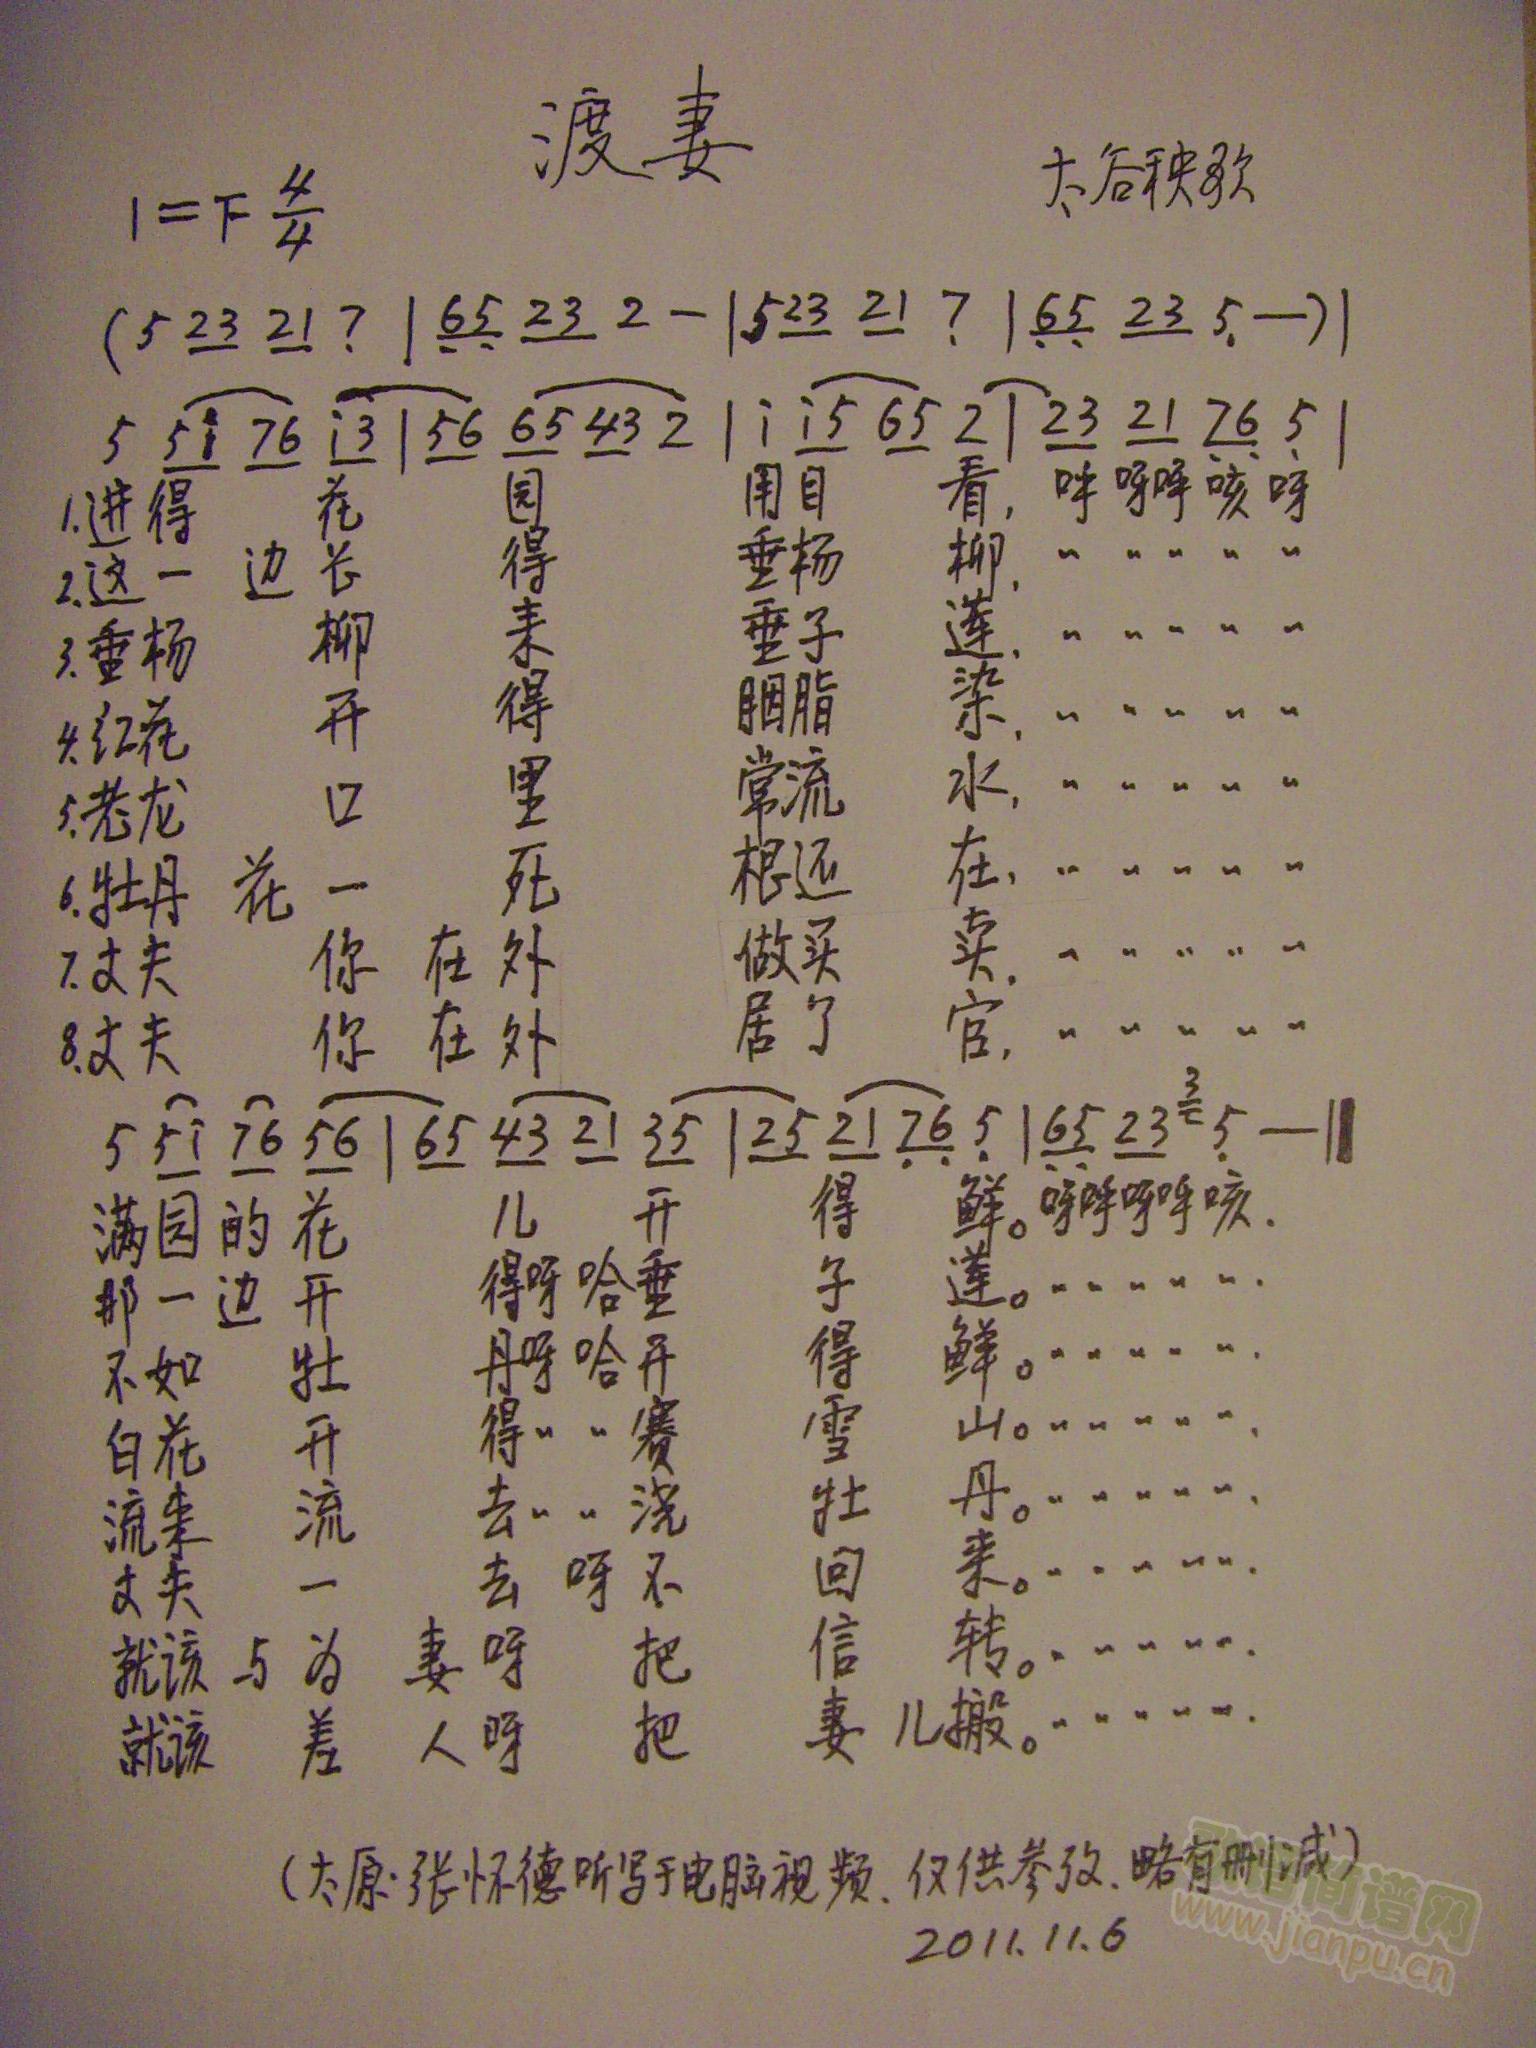 渡妻
太谷秧歌
1=F 4/4
(5 23 21 7 | 65 23 2 — | 5 23 21 7 | 65 23 5 —) |
5 5i 76 i3 | 56 65 43 2 | i i5 65 2 | 23 21 76 5 |
1.进得 花 园 用目 看, 呀呀呼咳呀
2.这一边长 得 垂杨 柳, 〃 〃 〃 〃 〃
3.垂杨 柳 来 垂子 莲, 〃 〃 〃 〃 〃
4.红花 开 得 胭脂 染, 〃 〃 〃 〃 〃
5.老龙 口 里 常流 水, 〃 〃 〃 〃 〃
6.牡丹花一 死 根还 在, 〃 〃 〃 〃 〃
7.丈夫 你在外 做买 卖, 〃 〃 〃 〃 〃
8.丈夫 你在外 居了 官, 〃 〃 〃 〃 〃
5 5i 76 56 | 65 43 21 35 | 25 21 76 5 | 65 23 3 5 — ‖
满园的花 儿 开 得 鲜。呀呼呀呼咳.
那一边开 得呀哈垂 子 莲。〃 〃 〃 〃 〃.
不如 牡 丹呀哈开 得 鲜。〃 〃 〃 〃 〃.
白花 开 得〃 〃赛 雪 山。〃 〃 〃 〃 〃.
流来 流 去〃 〃浇 牡 丹。〃 〃 〃 〃 〃.
丈夫 一 去 呀不 回 来。〃 〃 〃 〃 〃.
就该与为 妻呀 把 信 转。〃 〃 〃 〃 〃.
就该 差 人呀 把 妻儿搬。〃 〃 〃 〃 〃.
(太原·张怀德听写于电脑视频、仅供参考、略有删减)
2011.11.6
歌谱简谱网
www.jianpu.cn